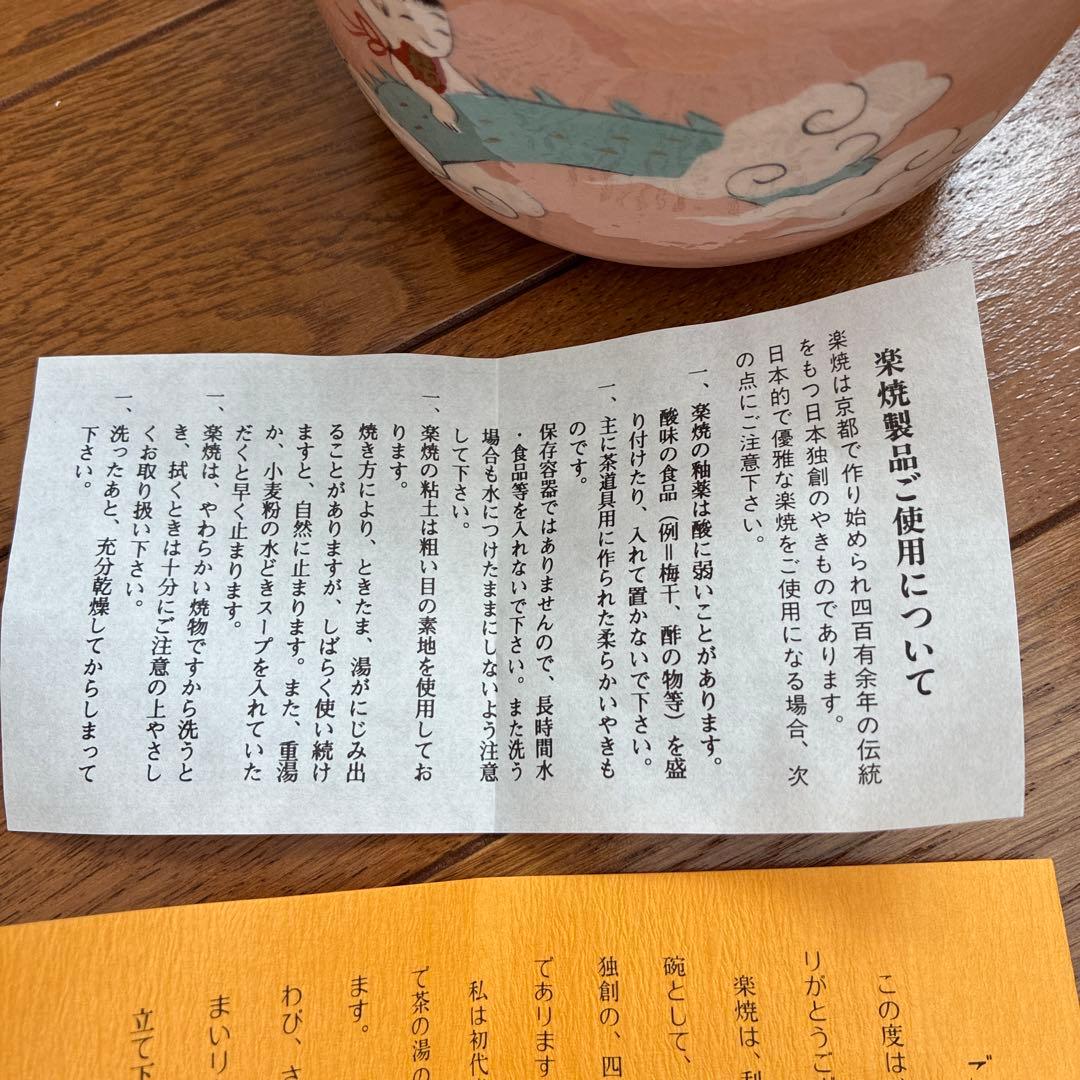 楽焼製品ご使用について
楽焼は京都で作り始められ四百有余年の伝統
をもつ日本独創のやきものであります。
日本的で優雅な楽焼をご使用になる場合、次
の点にご注意下さい。
一、楽焼の釉薬は酸に弱いことがあります。
酸味の食品（例＝梅干、酢の物等）を盛
り付けたり、入れて置かないで下さい。
一、主に茶道具用に作られた柔らかいやきも
のです。
保存容器ではありませんので、長時間水
・食品等を入れないで下さい。また洗う
場合も水につけたままにしないよう注意
して下さい。
一、楽焼の粘土は粗い目の素地を使用してお
ります。
焼き方により、ときたま、湯がにじみ出
ることがありますが、しばらく使い続け
ますと、自然に止まります。また、重湯
か、小麦粉の水どきスープを入れていた
だくと早く止まります。
一、楽焼は、やわらかい焼物ですから洗うと
き、拭くときは十分にご注意の上やさし
くお取り扱い下さい。
一、洗ったあと、充分乾燥してからしまって
下さい。
この度は
りがとうご
楽焼は、利
碗として、
独創の、四
であります
私は初代
て茶の湯の
ます。
わび、さ
まいり
立て下